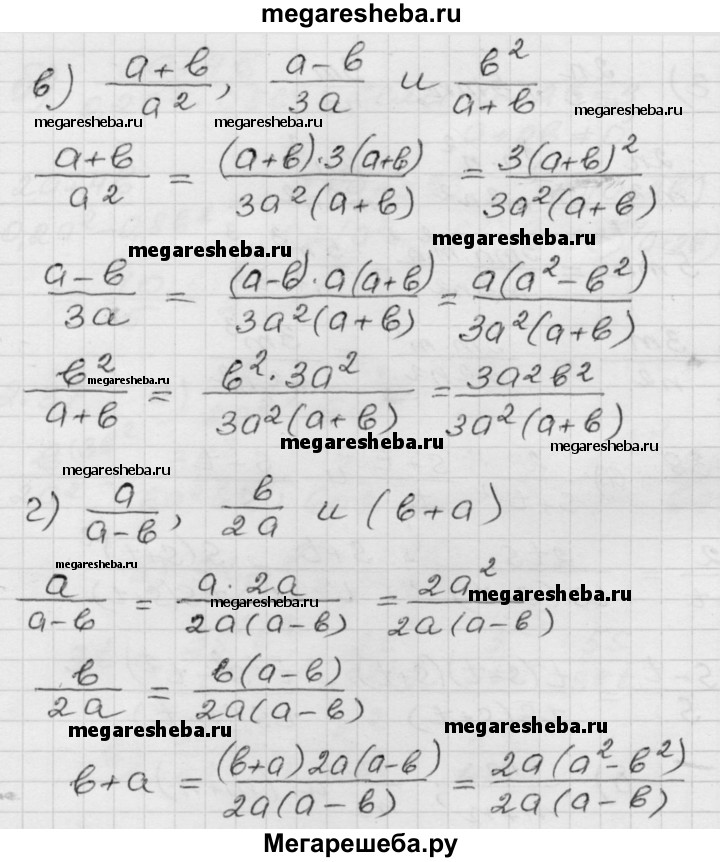 megaresheba.ru
в) (a+в)/a², (a-в)/3a и в²/(a+в)
megaresheba.ru megaresheba.ru megaresheba.ru
(a+в)/a² = ((a+в)·3(a+в))/(3a²(a+в)) = 3(a+в)²/(3a²(a+в))
megaresheba.ru megaresheba.ru
(a-в)/3a = ((a-в)·a(a+в))/(3a²(a+в)) = a(a²-в²)/(3a²(a+в))
в²/(a+в) = (в²·3a²)/(3a²(a+в)) = 3a2в2/(3a²(a+в))
megaresheba.ru
megaresheba.ru megaresheba.ru
megaresheba.ru
г) a/(a-в), в/2a и (в+a)
megaresheba.ru
a/(a-в) = (a·2a)/(2a(a-в)) = 2a²/(2a(a-в))
megaresheba.ru megaresheba.ru
в/2a = в(a-в)/(2a(a-в))
megaresheba.ru megaresheba.ru
в+a = ((в+a)2a(a-в))/(2a(a-в)) = 2a(a²-в²)/(2a(a-в))
Мегарешеба.ру